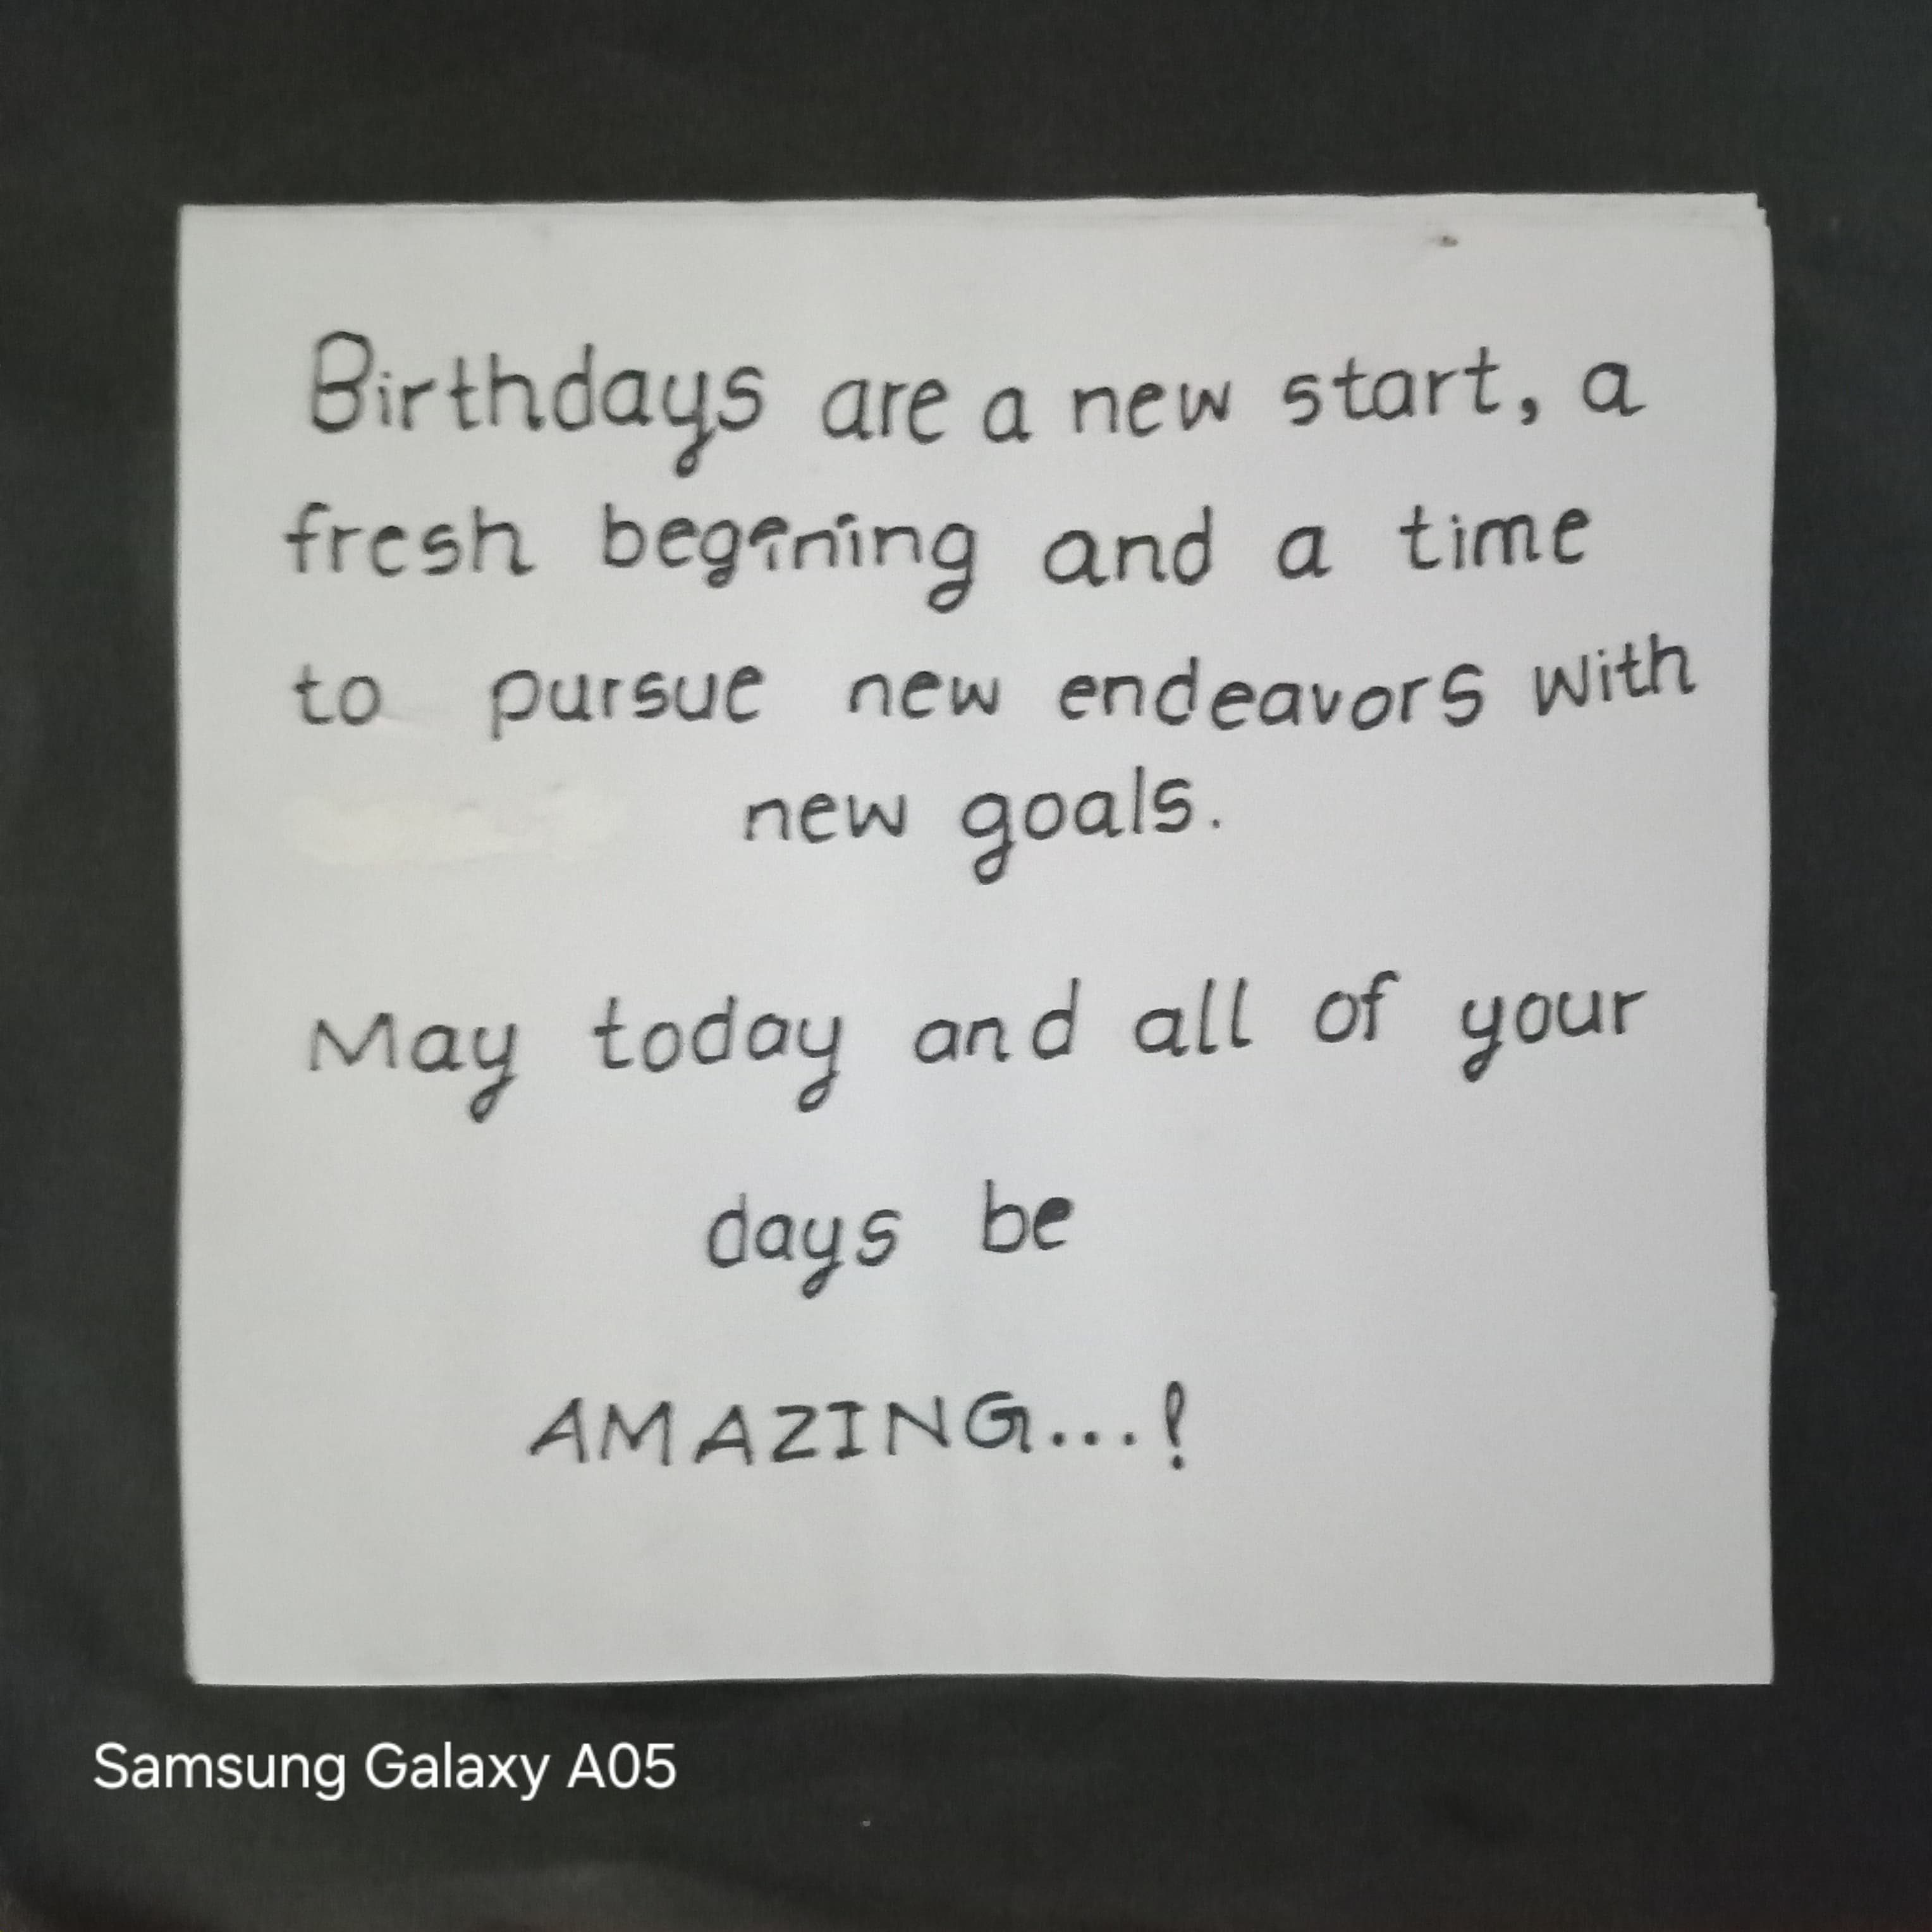 Birthdays are a new start, a
fresh begining and a time
to pursue new endeavors with
new goals.
May today and all of your
days be
AMAZING...!
Samsung Galaxy A05